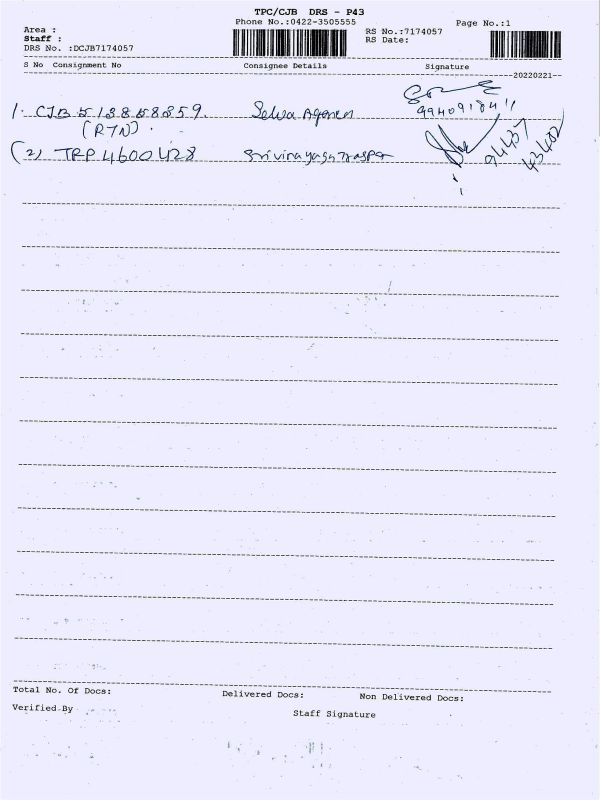 TPC/CJB DRS - P43
Phone No.:0422-3505555
Page No.:1
Area :
Staff :
DRS No. :DCJB7174057
RS No.:7174057
RS Date:
S No Consignment No Consignee Details Signature
20220221
1. CJB 513858359. Selva Agency
9940918411
(RTN).
(2) TRP 4600428 Srivinayaga Trasper
94437
43402
Total No. Of Docs: Delivered Docs: Non Delivered Docs:
Verified By
Staff Signature